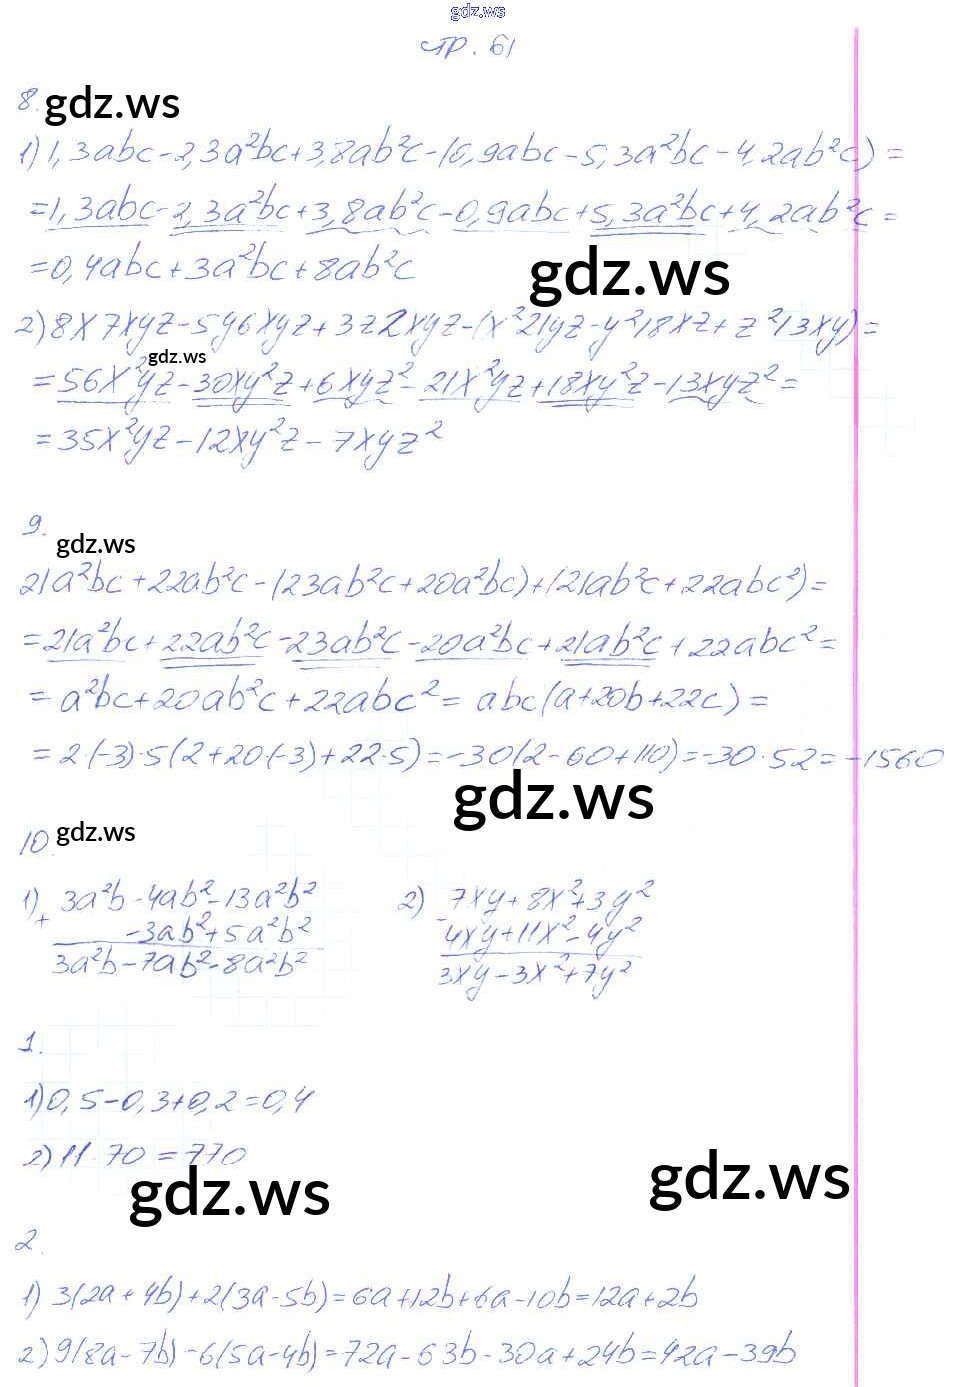 gdz.ws
стр. 61
8. gdz.ws
1) 1,3abc-2,3a²bc+3,8ab²c-(0,9abc-5,3a²bc-4,2ab²c)=
=1,3abc-2,3a²bc+3,8ab²c-0,9abc+5,3a²bc+4,2ab²c=
=0,4abc+3a²bc+8ab²c
gdz.ws
2) 8x7xyz-5y6xyz+3z2xyz-(x²21yz-y²18xz+z²13xy)=
gdz.ws
=56x²yz-30xy²z+6xyz²-21x²yz+18xy²z-13xyz²=
=35x²yz-12xy²z-7xyz²
9.
gdz.ws
21a²bc+22ab²c-(23ab²c+20a²bc)+(21ab²c+22abc²)=
=21a²bc+22ab²c-23ab²c-20a²bc+21ab²c+22abc²=
=a²bc+20ab²c+22abc²=abc(a+20b+22c)=
=2·(-3)·5(2+20(-3)+22·5)=-30(2-60+110)=-30·52=-1560
gdz.ws
10. gdz.ws
1) 3a²b-4ab²-13a²b²
+ -3ab²+5a²b²
3a²b-7ab²-8a²b²
2) 7xy+8x²+3y²
- 4xy+11x²-4y²
3xy-3x²+7y²
1.
1) 0,5-0,3+0,2=0,4
2) 11·70=770
gdz.ws
gdz.ws
2.
1) 3(2a+4b)+2(3a-5b)=6a+12b+6a-10b=12a+2b
2) 9(8a-7b)-6(5a-4b)=72a-63b-30a+24b=42a-39b